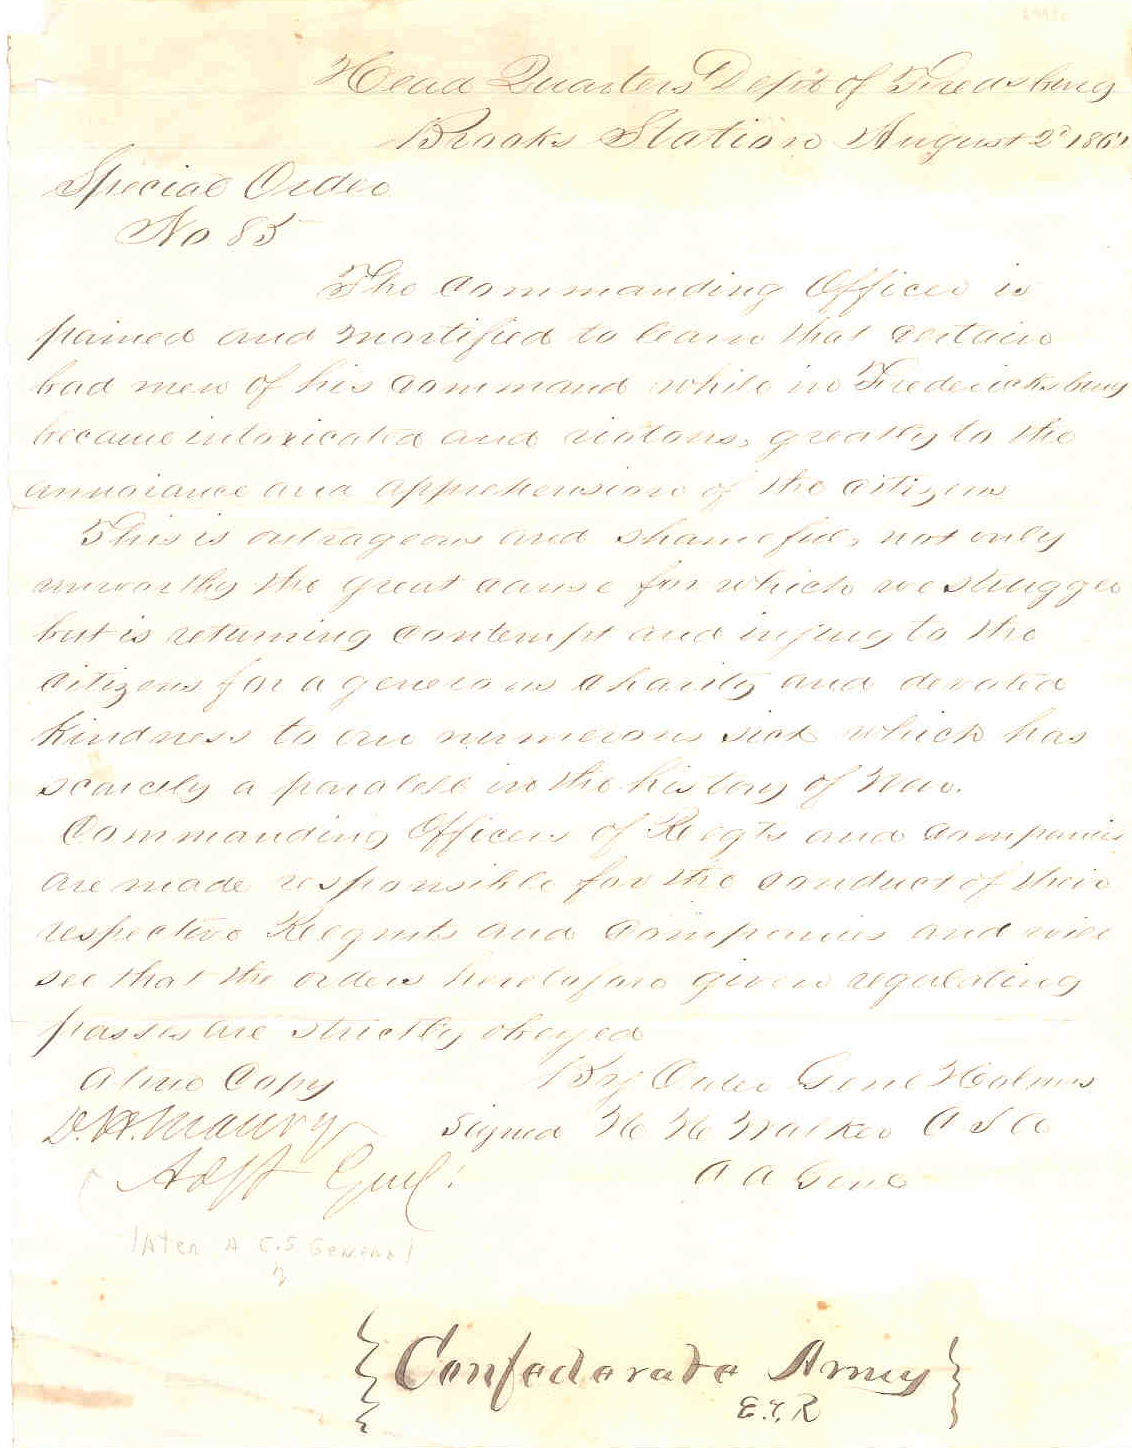 Head Quarters Dept of Fredsburg
Brooks Station August 2d 186
Special Order
No 85
The Commanding Officer is
pained and mortified to learn that certain
bad men of his command while in Fredericksburg
became intoxicated and riotous, greatly to the
annoiance and apprehension of the citizens
This is outrageous and shameful, not only
unworthy the great cause for which we struggle
but is returning contempt and injury to the
citizens for a generous charity and devoted
kindness to our numerous sick which has
scarcely a paralell in the history of War.
Commanding Officers of Regts and Companies
are made responsible for the conduct of their
respective Regmts and Companies and will
see that the orders heretofore given regulating
passes are strictly obeyed
A true Copy By Order Genl Holmes
D.H. Maury Signed H H Walker C S A
Adjt Genl. A A Genl
later A C.S. General
Confederate Army
E.T.R